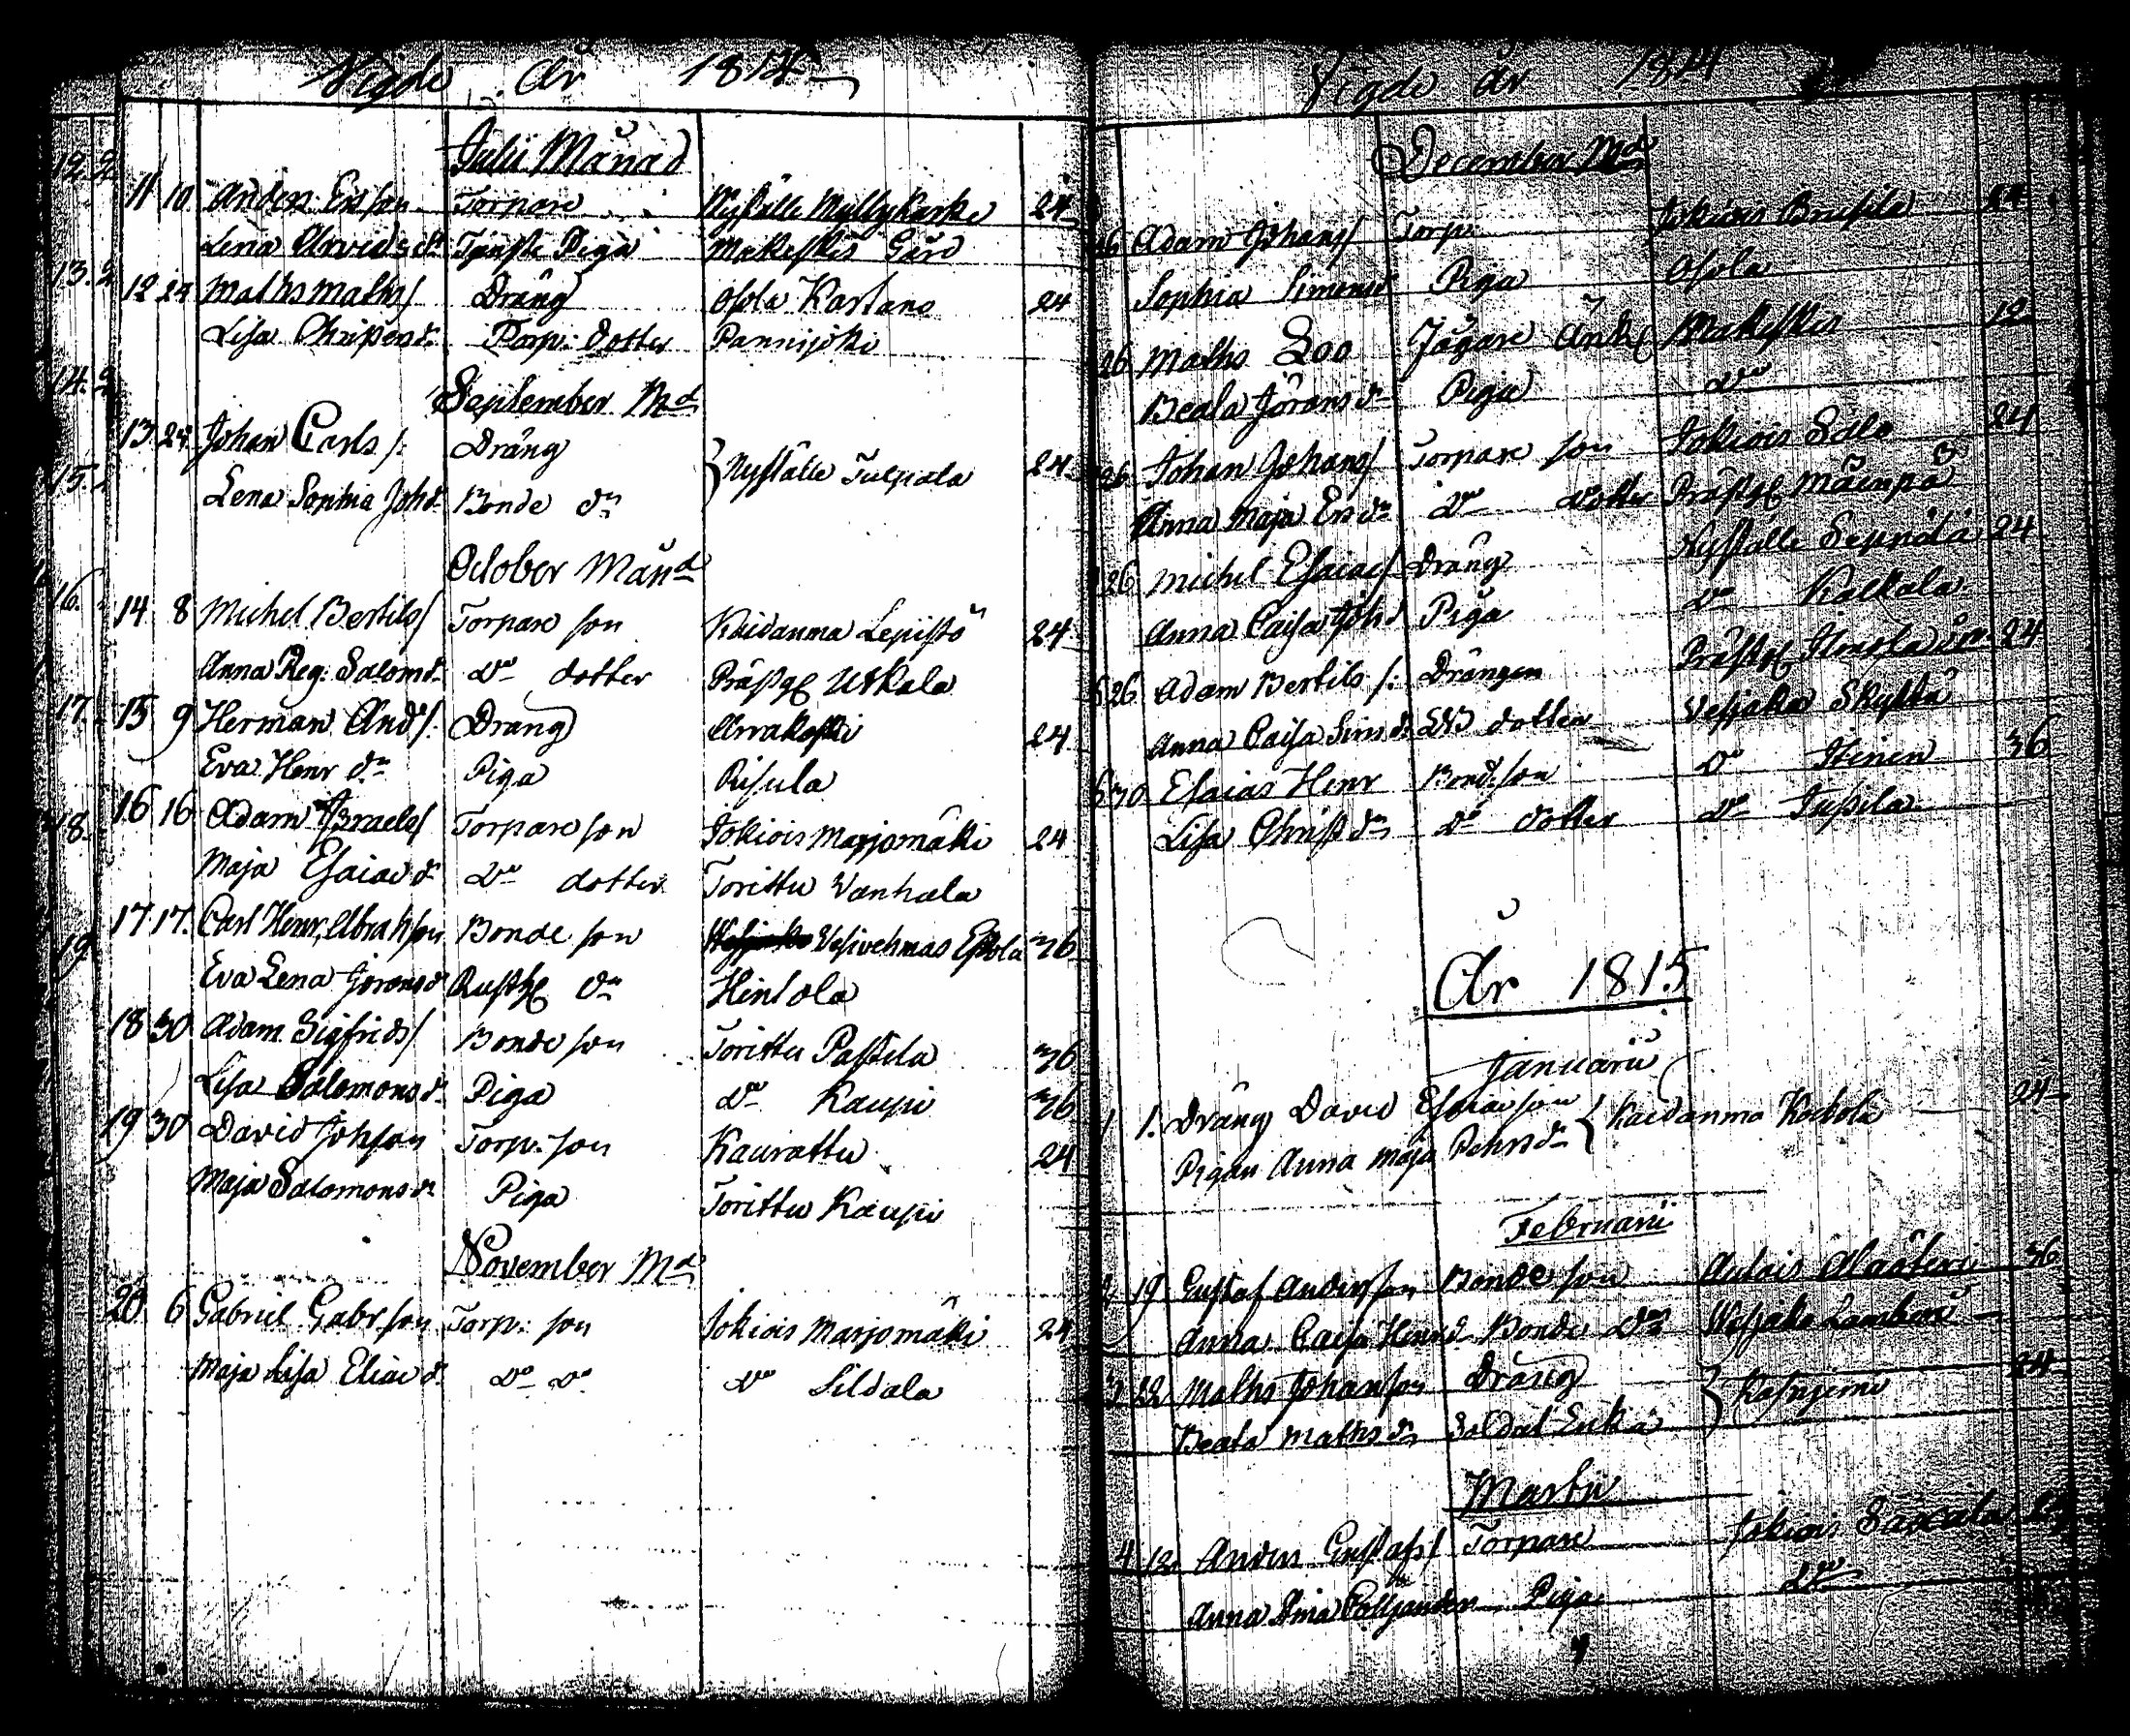 Vigde År 1814
Julii Månad
11 10 Anders Ersson Torpare Nyställe Myllykarke 24
Lena Arvidsdr Tjenste Piga Makeskis Gård
12 24 Maths Maths/ Dräng Osola Kastano 24
Lisa Christersd. Torp: dotter Pannijoki
September Md
13 24 Johan Carls/: Dräng } Nyställe Tulpala 24
Lena Sophia Johd. Bonde dr
October Månd
14 8 Michel Bertils/ Torpare son Kaidanma Lepistö 24
Anna Reg: Salomd. Do dotter Prästg Uskala
15 9 Herman And/: Dräng Arrakoski 24
Eva Henr dr Piga Risula
16 16 Adam Israels/ Torpare son Jokiois Marjomäki 24
Maja Esaiæ d. Do dotter Torittu Vanhala
17 17. Carl Henr. Abrahson Bonde son Vesivehmas Eskola 36
Eva Lena Göransd. Rusth dr Hintola
18 30 Adam Sigfrids/ Bonde son Torittu Pastila 36
Lisa Salomonsd. Piga Do Kaupi 36
19 30 David Johsson Torp: son Kaurattu 24
Maja Salomonsd. Piga Torittu Kaupi
November Md
20 6 Gabriel Gabr.son Torp: son Jokiois Marjomäki 24
Maja Lisa Eliæ d. Do Do Do Sildala
Vigde År 1814
December Md
26 Adam Johans/ Torp: Jokiois Brusila 24
Sophia Simonsd Piga Osola
26 Maths Loo Jägare Änk Makeskis 12
Beata Göransd. Piga Do
26 Johan Johans/ Torpare son Jokiois Salo 24
Anna Maja Ersdr Do dotter Prästg Mäenpä
26 Michel Esaiæ/ Dräng Nyställe Seppälä 24
Anna Caisa Johd Piga Do Kalkala
26 Adam Bertils/: Drängen Prästg 24
Anna Caisa Simd. dotter Vesjako Skyttä
30 Esaias Henr Bond: son Do Itinen 36
Lisa Christdr Do dotter Do Tupila
År 1815
Januarii
1 1. Dräng David Esaiæson { Kaidanma Kockola 24
Pigan Anna Maja Pehrsdr
Februarii
2 19 Gustaf Andersson Bonde son Aulois Alaäteri 36
Anna Caisa Henrd. Bonde Dr Vesjako
3 22 Maths Johansson Dräng } Kasnjemi 24
Beata Mathsdr Soldat Enka
Martii
4 12 Anders Gustafs/ Torpare Jokiois
Anna Stina Piga Do